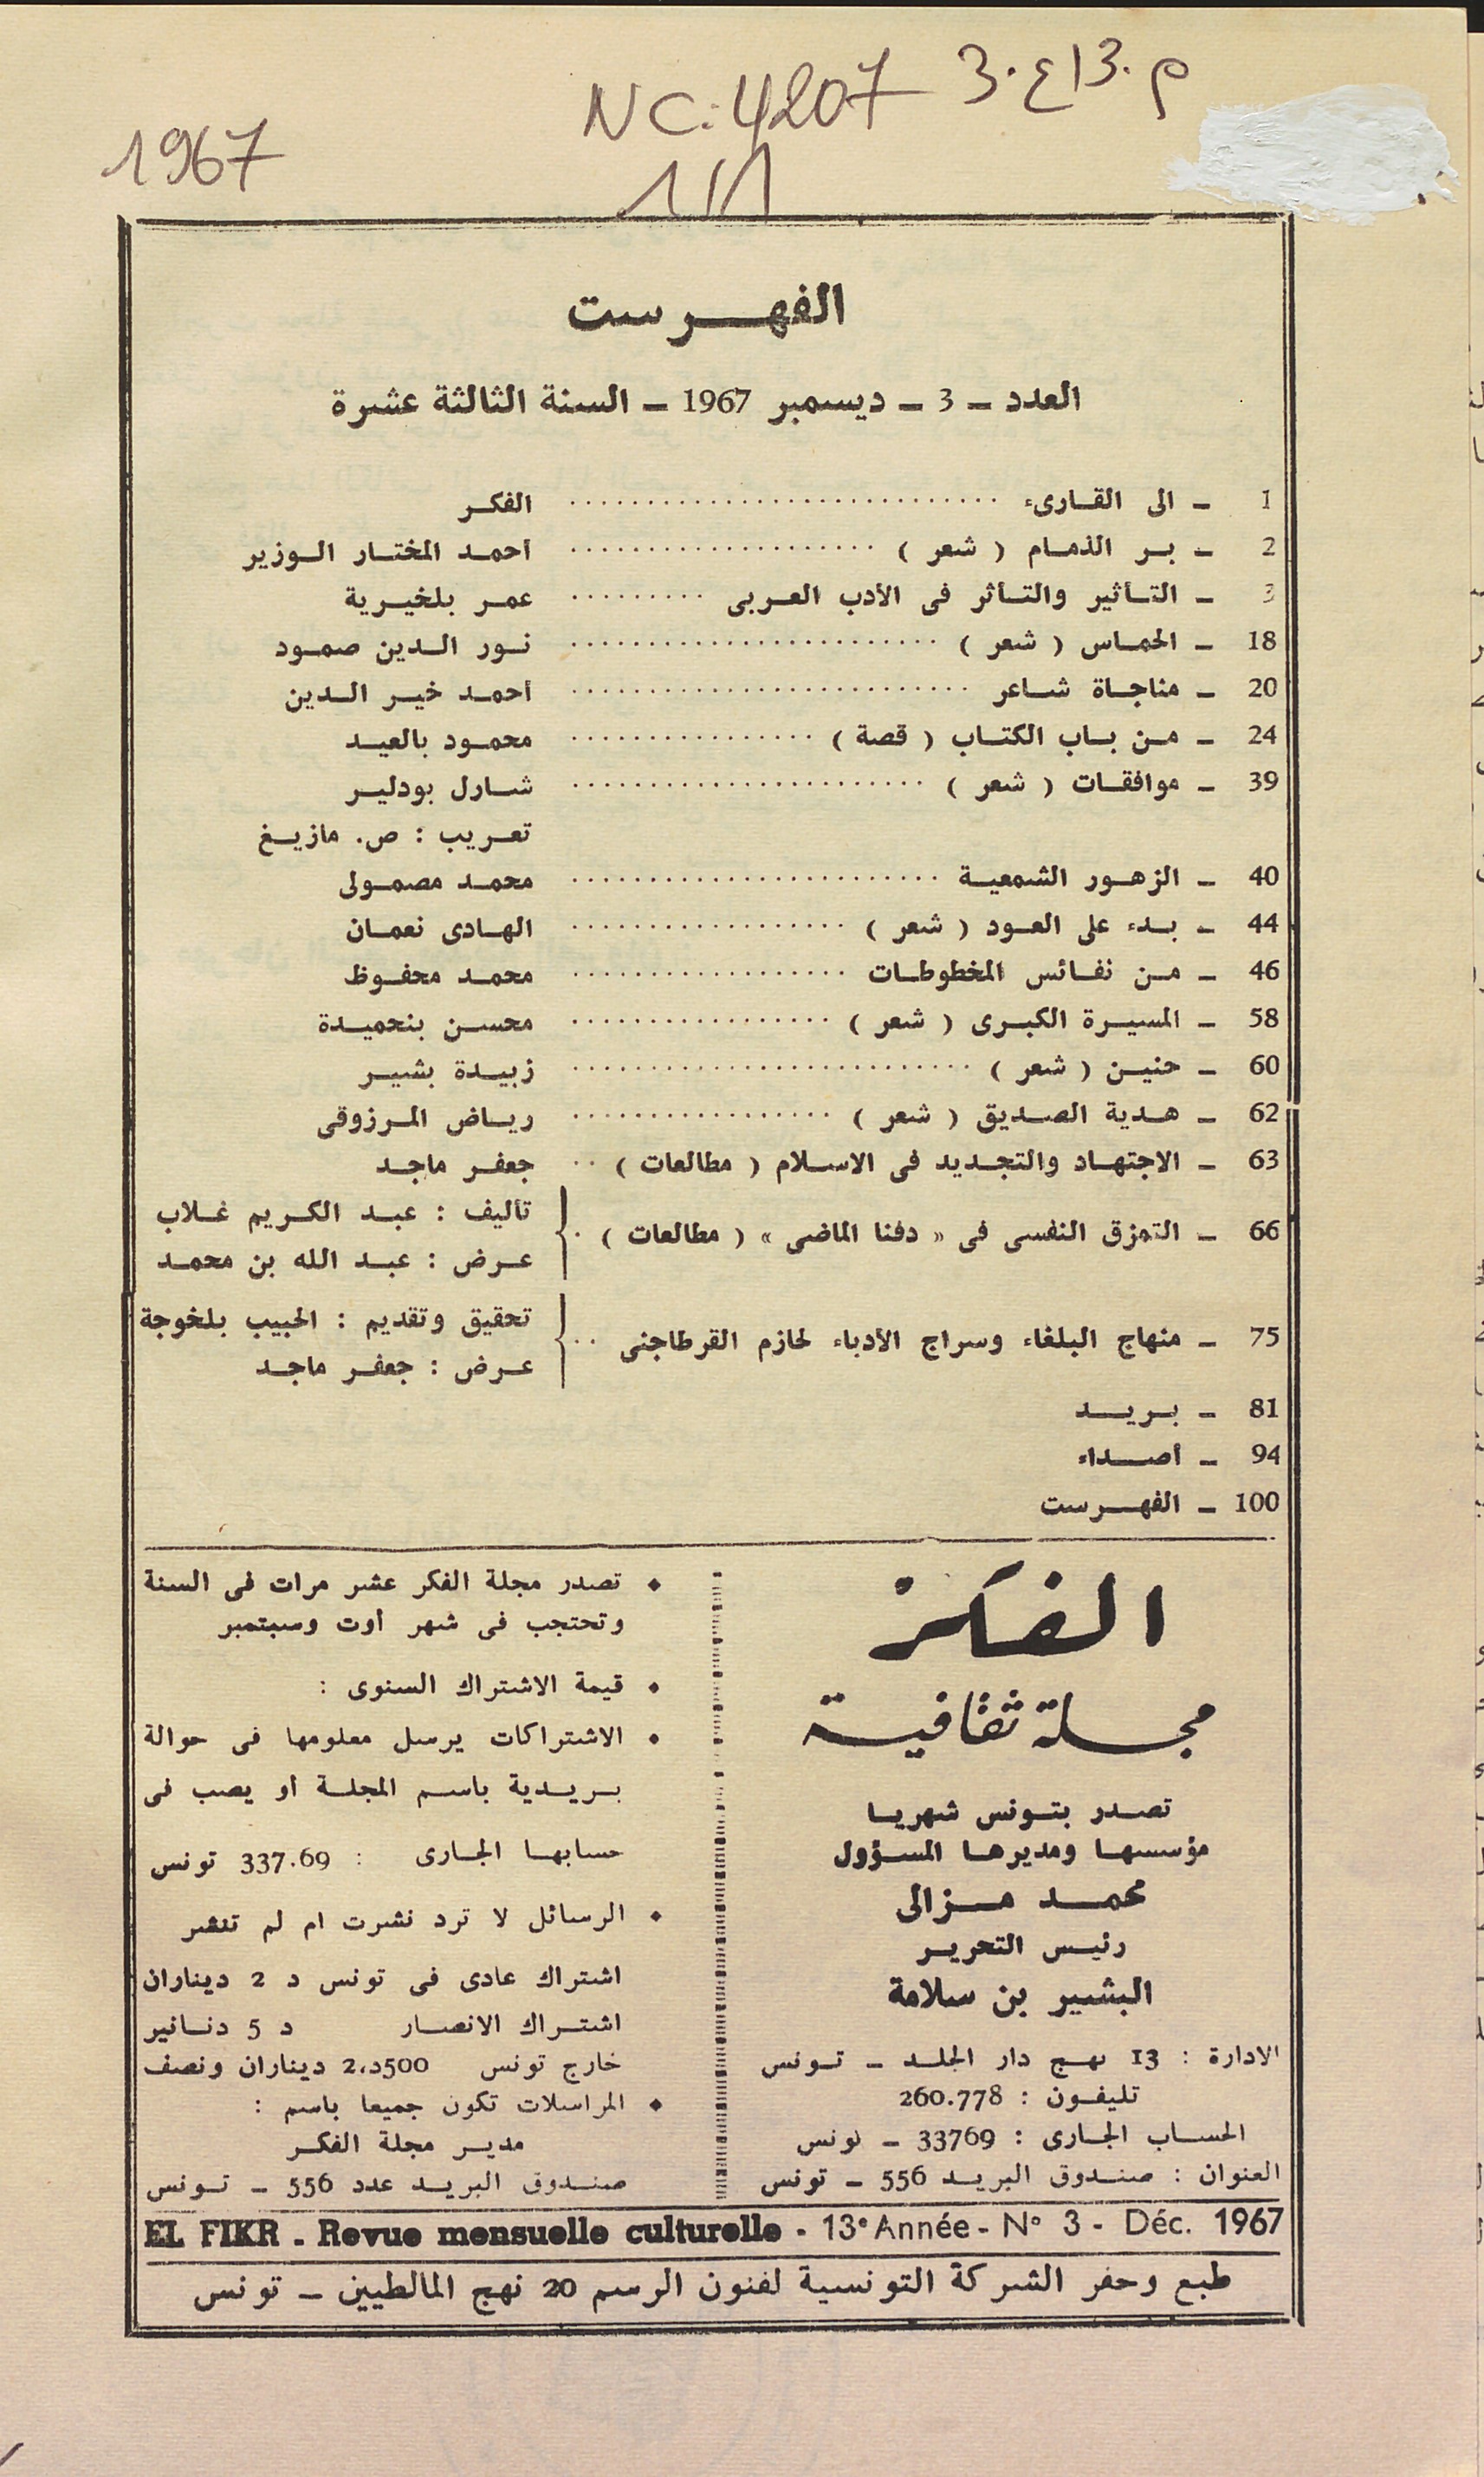 م.13ع.3
NC:4207
1/1
1967
الفهرست
العدد – 3 – ديسمبر 1967 – السنة الثالثة عشرة
1 – الى القارىء ............................ الفكر
2 – بر الذمام ( شعر ) .................... أحمد المختار الوزير
3 – التأثير والتأثر فى الأدب العربى ......... عمر بلخيرية
18 – الحماس ( شعر ) ........................ نور الدين صمود
20 – مناجاة شاعر .......................... أحمد خير الدين
24 – من باب الكتاب ( قصة ) ................ محمود بالعيد
39 – موافقات ( شعر ) ....................... شارل بودلير
تعريب : ص. مازيغ
40 – الزهور الشمعية ........................ محمد مصمولى
44 – بدء على العود ( شعر ) .................. الهادى نعمان
46 – من نفائس المخطوطات .................. محمد محفوظ
58 – المسيرة الكبرى ( شعر ) ................. محسن بنحميدة
60 – حنين ( شعر ) .......................... زبيدة بشير
62 – هدية الصديق ( شعر ) ................. رياض المرزوقى
63 – الاجتهاد والتجديد فى الاسلام ( مطالعات ) .. جعفر ماجد
66 – التمزق النفسى فى « دفنا الماضى » ( مطالعات ) . تأليف : عبد الكريم غلاب
عرض : عبد الله بن محمد
75 – منهاج البلغاء وسراج الأدباء لحازم القرطاجنى .. تحقيق وتقديم : الحبيب بلخوجة
عرض : جعفر ماجد
81 – بريد
94 – أصداء
100 – الفهرست
الفكر
مجلة ثقافية
تصدر بتونس شهريا
مؤسسها ومديرها المسؤول
محمد مزالى
رئيس التحرير
البشير بن سلامة
الادارة : 13 نهج دار الجلد – تونس
تليفون : 260.778
الحساب الجارى : 33769 – تونس
العنوان : صندوق البريد 556 – تونس
• تصدر مجلة الفكر عشر مرات فى السنة
وتحتجب فى شهر أوت وسبتمبر
• قيمة الاشتراك السنوى :
• الاشتراكات يرسل معلومها فى حوالة
بريدية باسم المجلة أو يصب فى
حسابها الجارى : 337.69 تونس
• الرسائل لا ترد نشرت ام لم تنشر
اشتراك عادى فى تونس د 2 ديناران
اشتراك الانصار د 5 دنانير
خارج تونس 500د،2 ديناران ونصف
• المراسلات تكون جميعا باسم :
مدير مجلة الفكر
صندوق البريد عدد 556 – تونس
EL FIKR - Revue mensuelle culturelle - 13e Année - N° 3 - Déc. 1967
طبع وحفر الشركة التونسية لفنون الرسم 20 نهج المالطيين – تونس